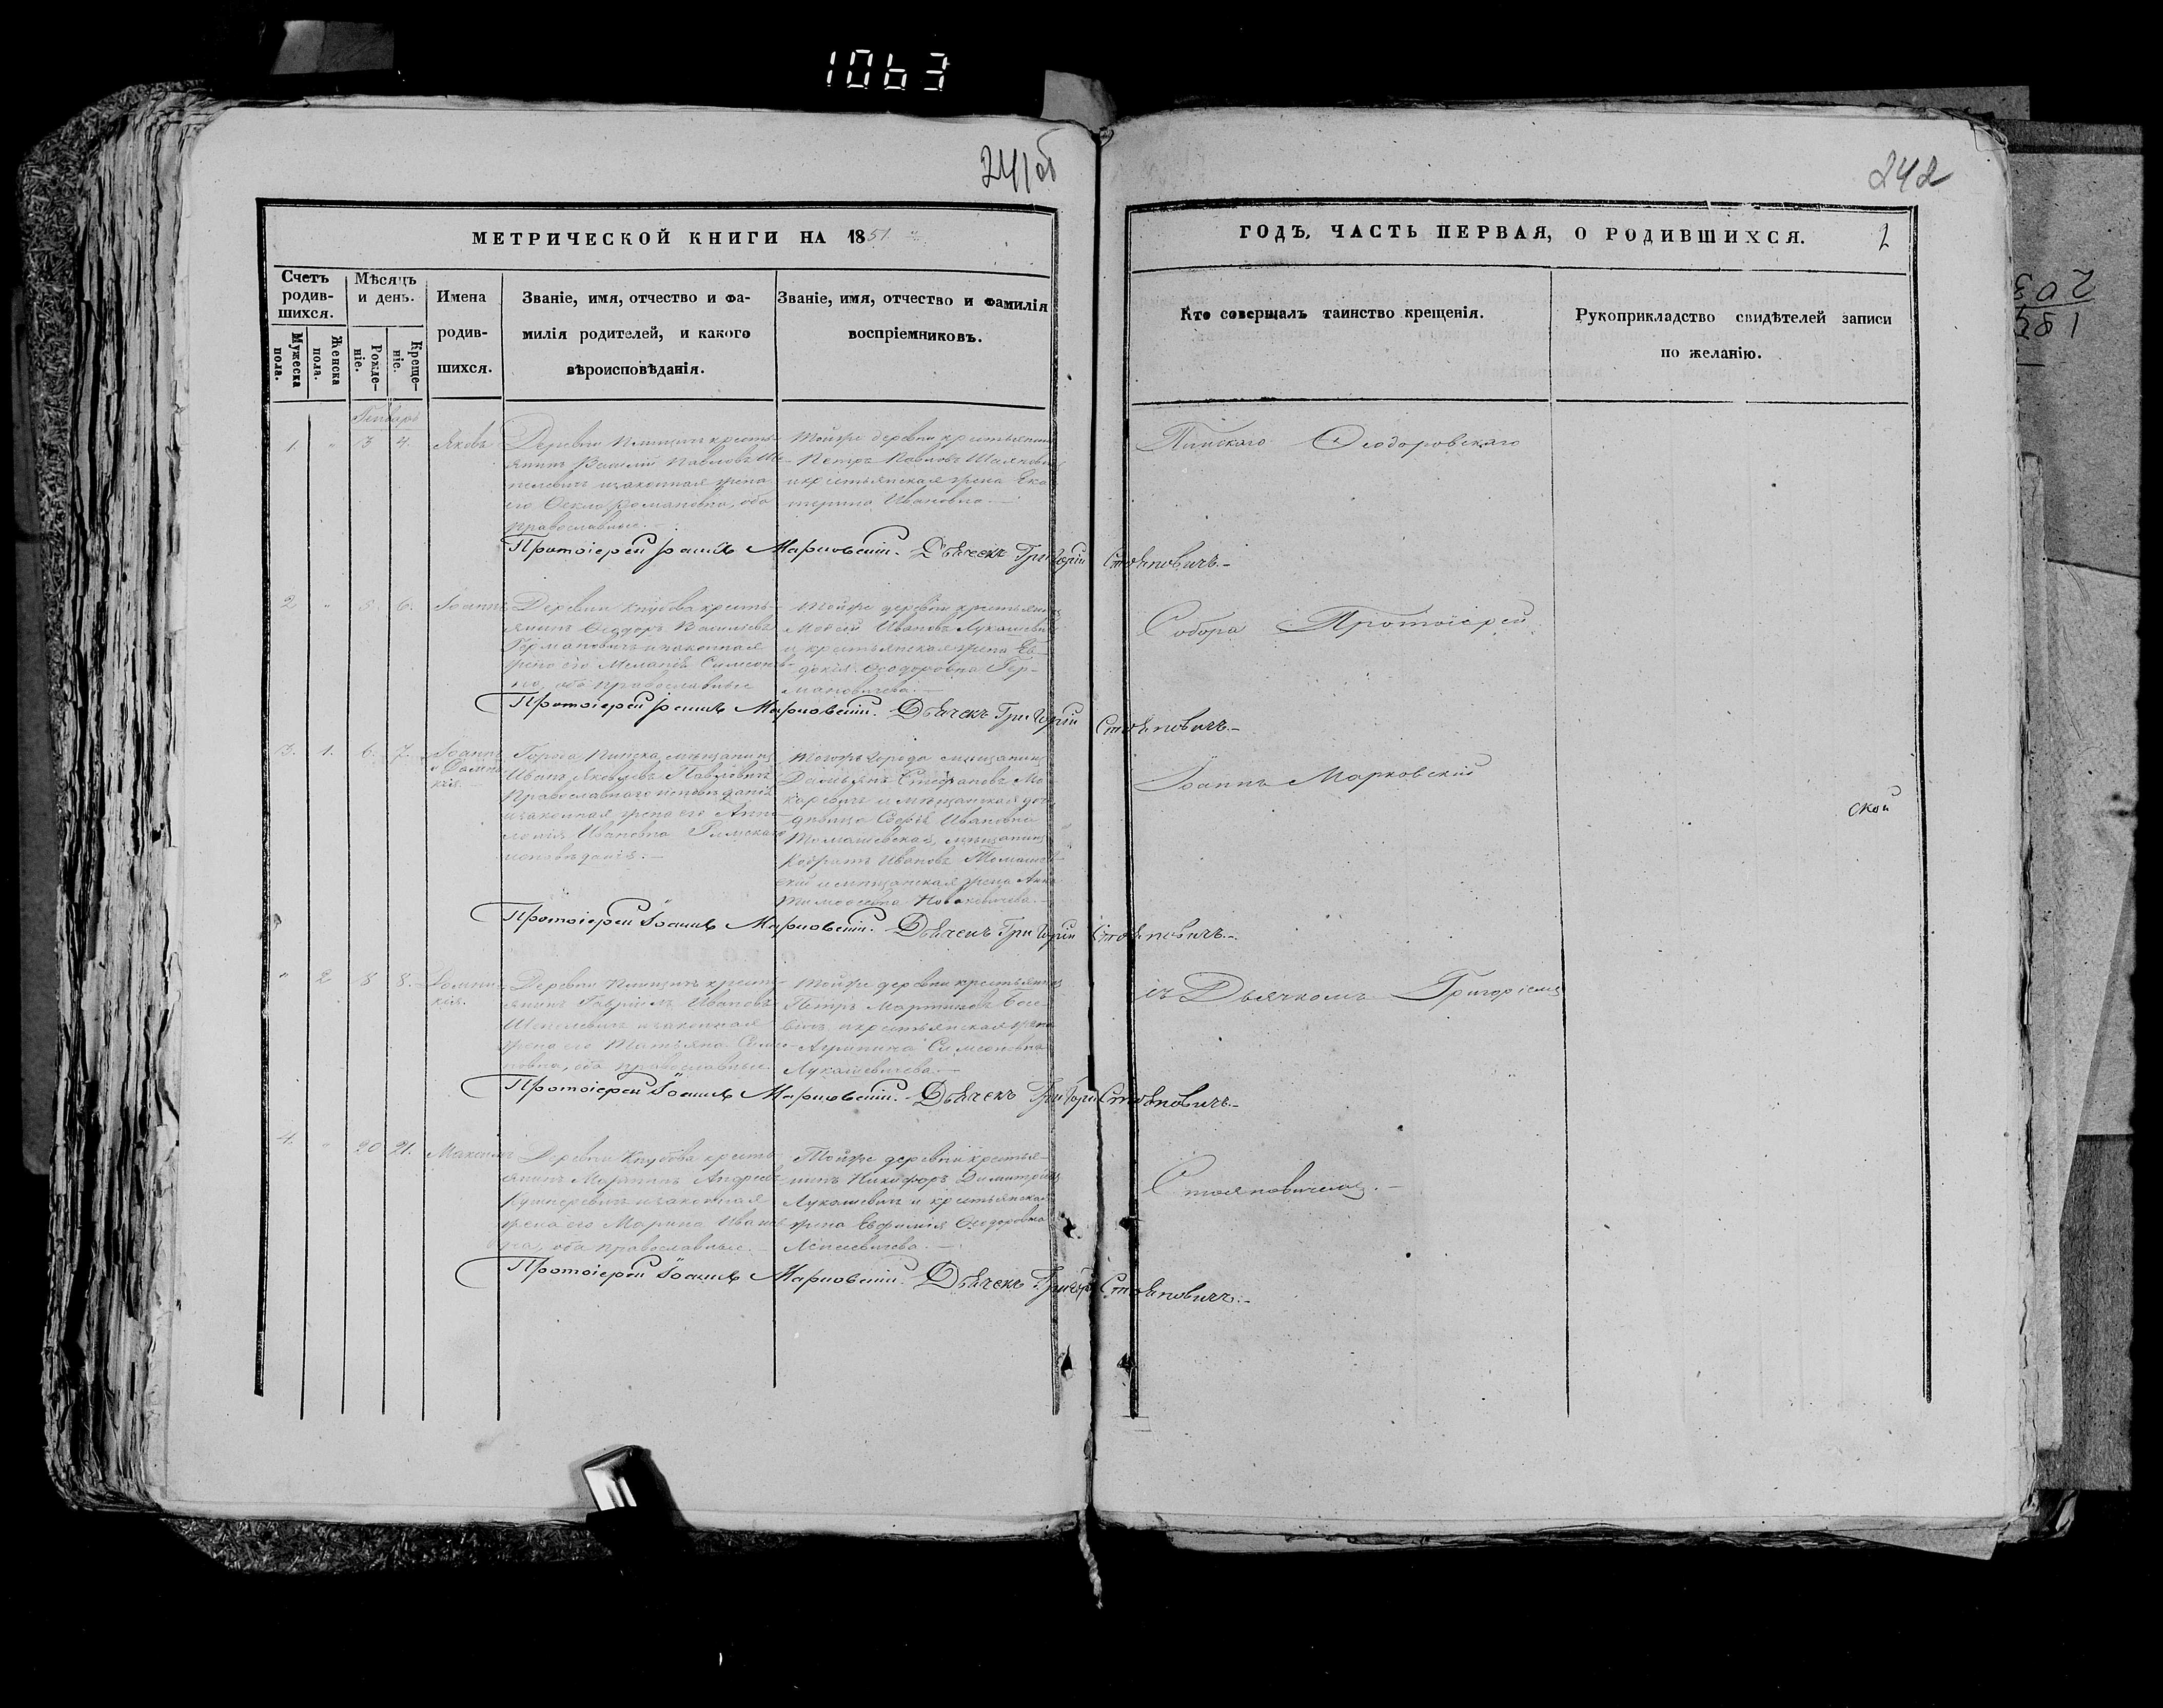 1063
241об
242
МЕТРИЧЕСКОЙ КНИГИ НА 1851
ГОДЪ, ЧАСТЬ ПЕРВАЯ, О РОДИВШИХСЯ.
2
Счетъ родив-шихся.
Мужеска пола.
Женска пола.
Мѣсяцъ и день.
Рожде-ніе.
Креще-ніе.
Имена
родив-
шихся.
Званіе, имя, отчество и фа-
милія родителей, и какого
вѣроисповѣданія.
Званіе, имя, отчество и фамилія
воспріемниковъ.
Кто совершалъ таинство крещенія.
Рукоприкладство свидѣтелей записи
по желанію.
Генварь
1. " 3 4. Яковъ
Деревни кресть-
янинъ Василій Павловъ
и законная жена
его Ѳекла Романовна, оба
православные.
Тойже деревни крестьянинъ
Петръ Павловъ
и крестьянская жена Ека-
терина Ивановна.
Протоіерей Іоаннъ Марковскій. Дьячекъ Григорій Стояновичъ.
2 " 5. 6. Іоаннъ
Деревни кресть-
янинъ Ѳеодоръ Васильевъ
Германовичъ и законная
жена его Меланія Симеонов-
на, оба православные
Тойже деревни крестьянинъ
Моѵсей Ивановъ Лукашевичъ
и крестьянская жена Ев-
докія Ѳеодоровна Гер-
мановичева.
Протоіерей Іоаннъ Марковскій. Дьячекъ Григорій Стояновичъ.
3. 1. 6. 7. Іоаннъ
и Домни-
кія.
Города Пинска мѣщанинъ
Иванъ Яковлевъ Павловичъ
Православнаго исповѣданія
и законная жена его
Ивановна Римскаго
исповѣданія.
Тогожъ города мѣщанинъ
Даміянъ Стефановъ Ма-
каревичъ и мѣщанская
дѣвица Софія Ивановна
Томашевская, мѣщанинъ
Кодратъ Ивановъ Томашев-
скій и мѣщанская жена Анна
Тимоѳеевна Новаковичева.
Протоіерей Іоаннъ Марковскій. Дьячекъ Григорій Стояновичъ.
" 2 8 8. Домни-
кія.
Деревни кресть-
янинъ Гавріилъ Ивановъ
и законная
жена его Татьяна Симео-
новна, оба православные.
Тойже деревни крестьянинъ
Петръ Мартиновъ
и крестьянская жена
Агрипина Симеоновна
Лукашевичева.
Протоіерей Іоаннъ Марковскій. Дьячекъ Григорій Стояновичъ.
4. " 20 21. Максимъ
Деревни кресть-
янинъ Мартинъ Андреевъ
и законная
жена его Марина Иванов-
на, оба православные.
Тойже деревни крестья-
нинъ Никифоръ Димитріевъ
Лукашевичъ и крестьянская
жена Евфимія Ѳеодоровна
Протоіерей Іоаннъ Марковскій. Дьячекъ Григорій Стояновичъ.
Пинскаго Ѳеодоровскаго
Собора Протоіерей
Іоаннъ Марковскій
ской
съ Дьячкомъ Григоріемъ
Стояновичемъ.